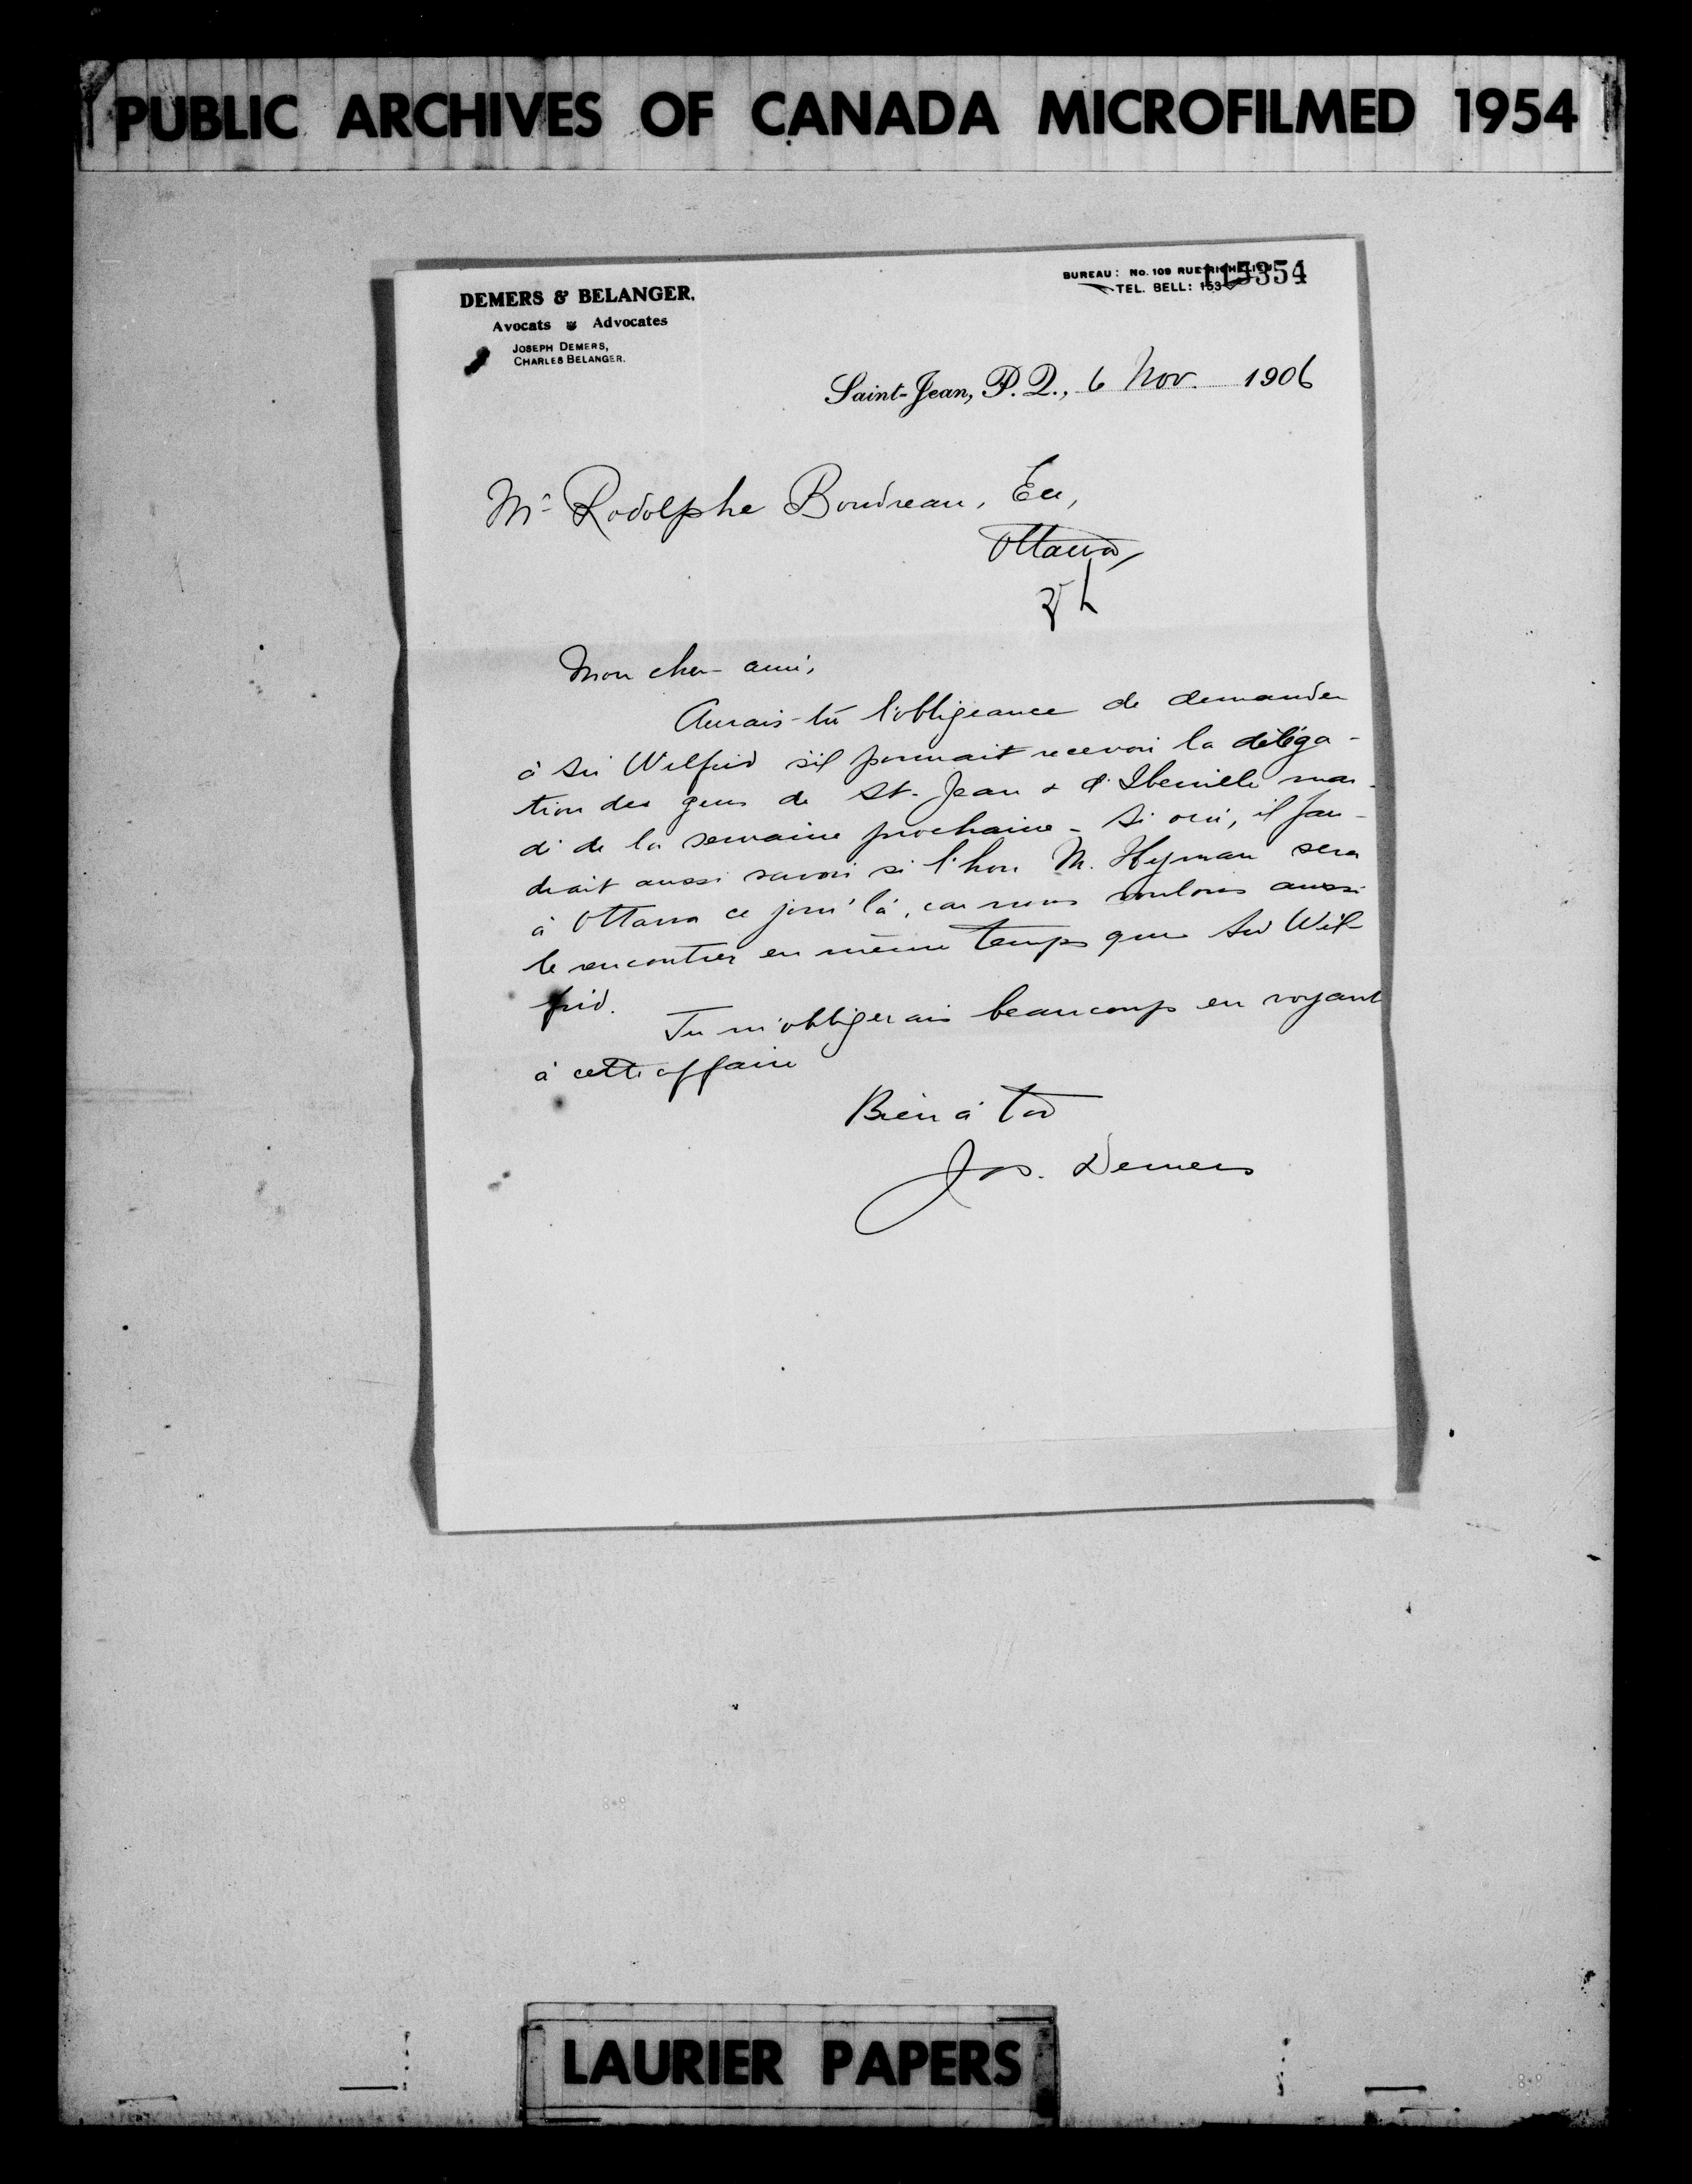 PUBLIC ARCHIVES OF CANADA MICROFILMED 1954
BUREAU: No. 109 RUE RICHELIEU
115354
TEL. BELL: 153
DEMERS & BELANGER,
Avocats Advocates
JOSEPH DEMERS,
CHARLES BELANGER.
Saint-Jean, P. Q., 6 Nov. 1906
Mr Rodolphe Boudreau, Ecr,
Ottawa,
Mon cher ami,
Aurais-tu l'obligeance de demander
à Sir Wilfrid s'il pourrait recevoir la déléga-
tion des gens de St-Jean & d'Iberville mar-
di de la semaine prochaine - Si oui, il fau-
drait aussi savoir si l'hon M. Hyman sera
à Ottawa ce jour là, car nous voulons aussi
le rencontrer en même temps que Sir Wil
frid.
Tu m'obligerais beaucoup en voyant
à cette affaire
Bien à toi
Jos. Demers
LAURIER PAPERS